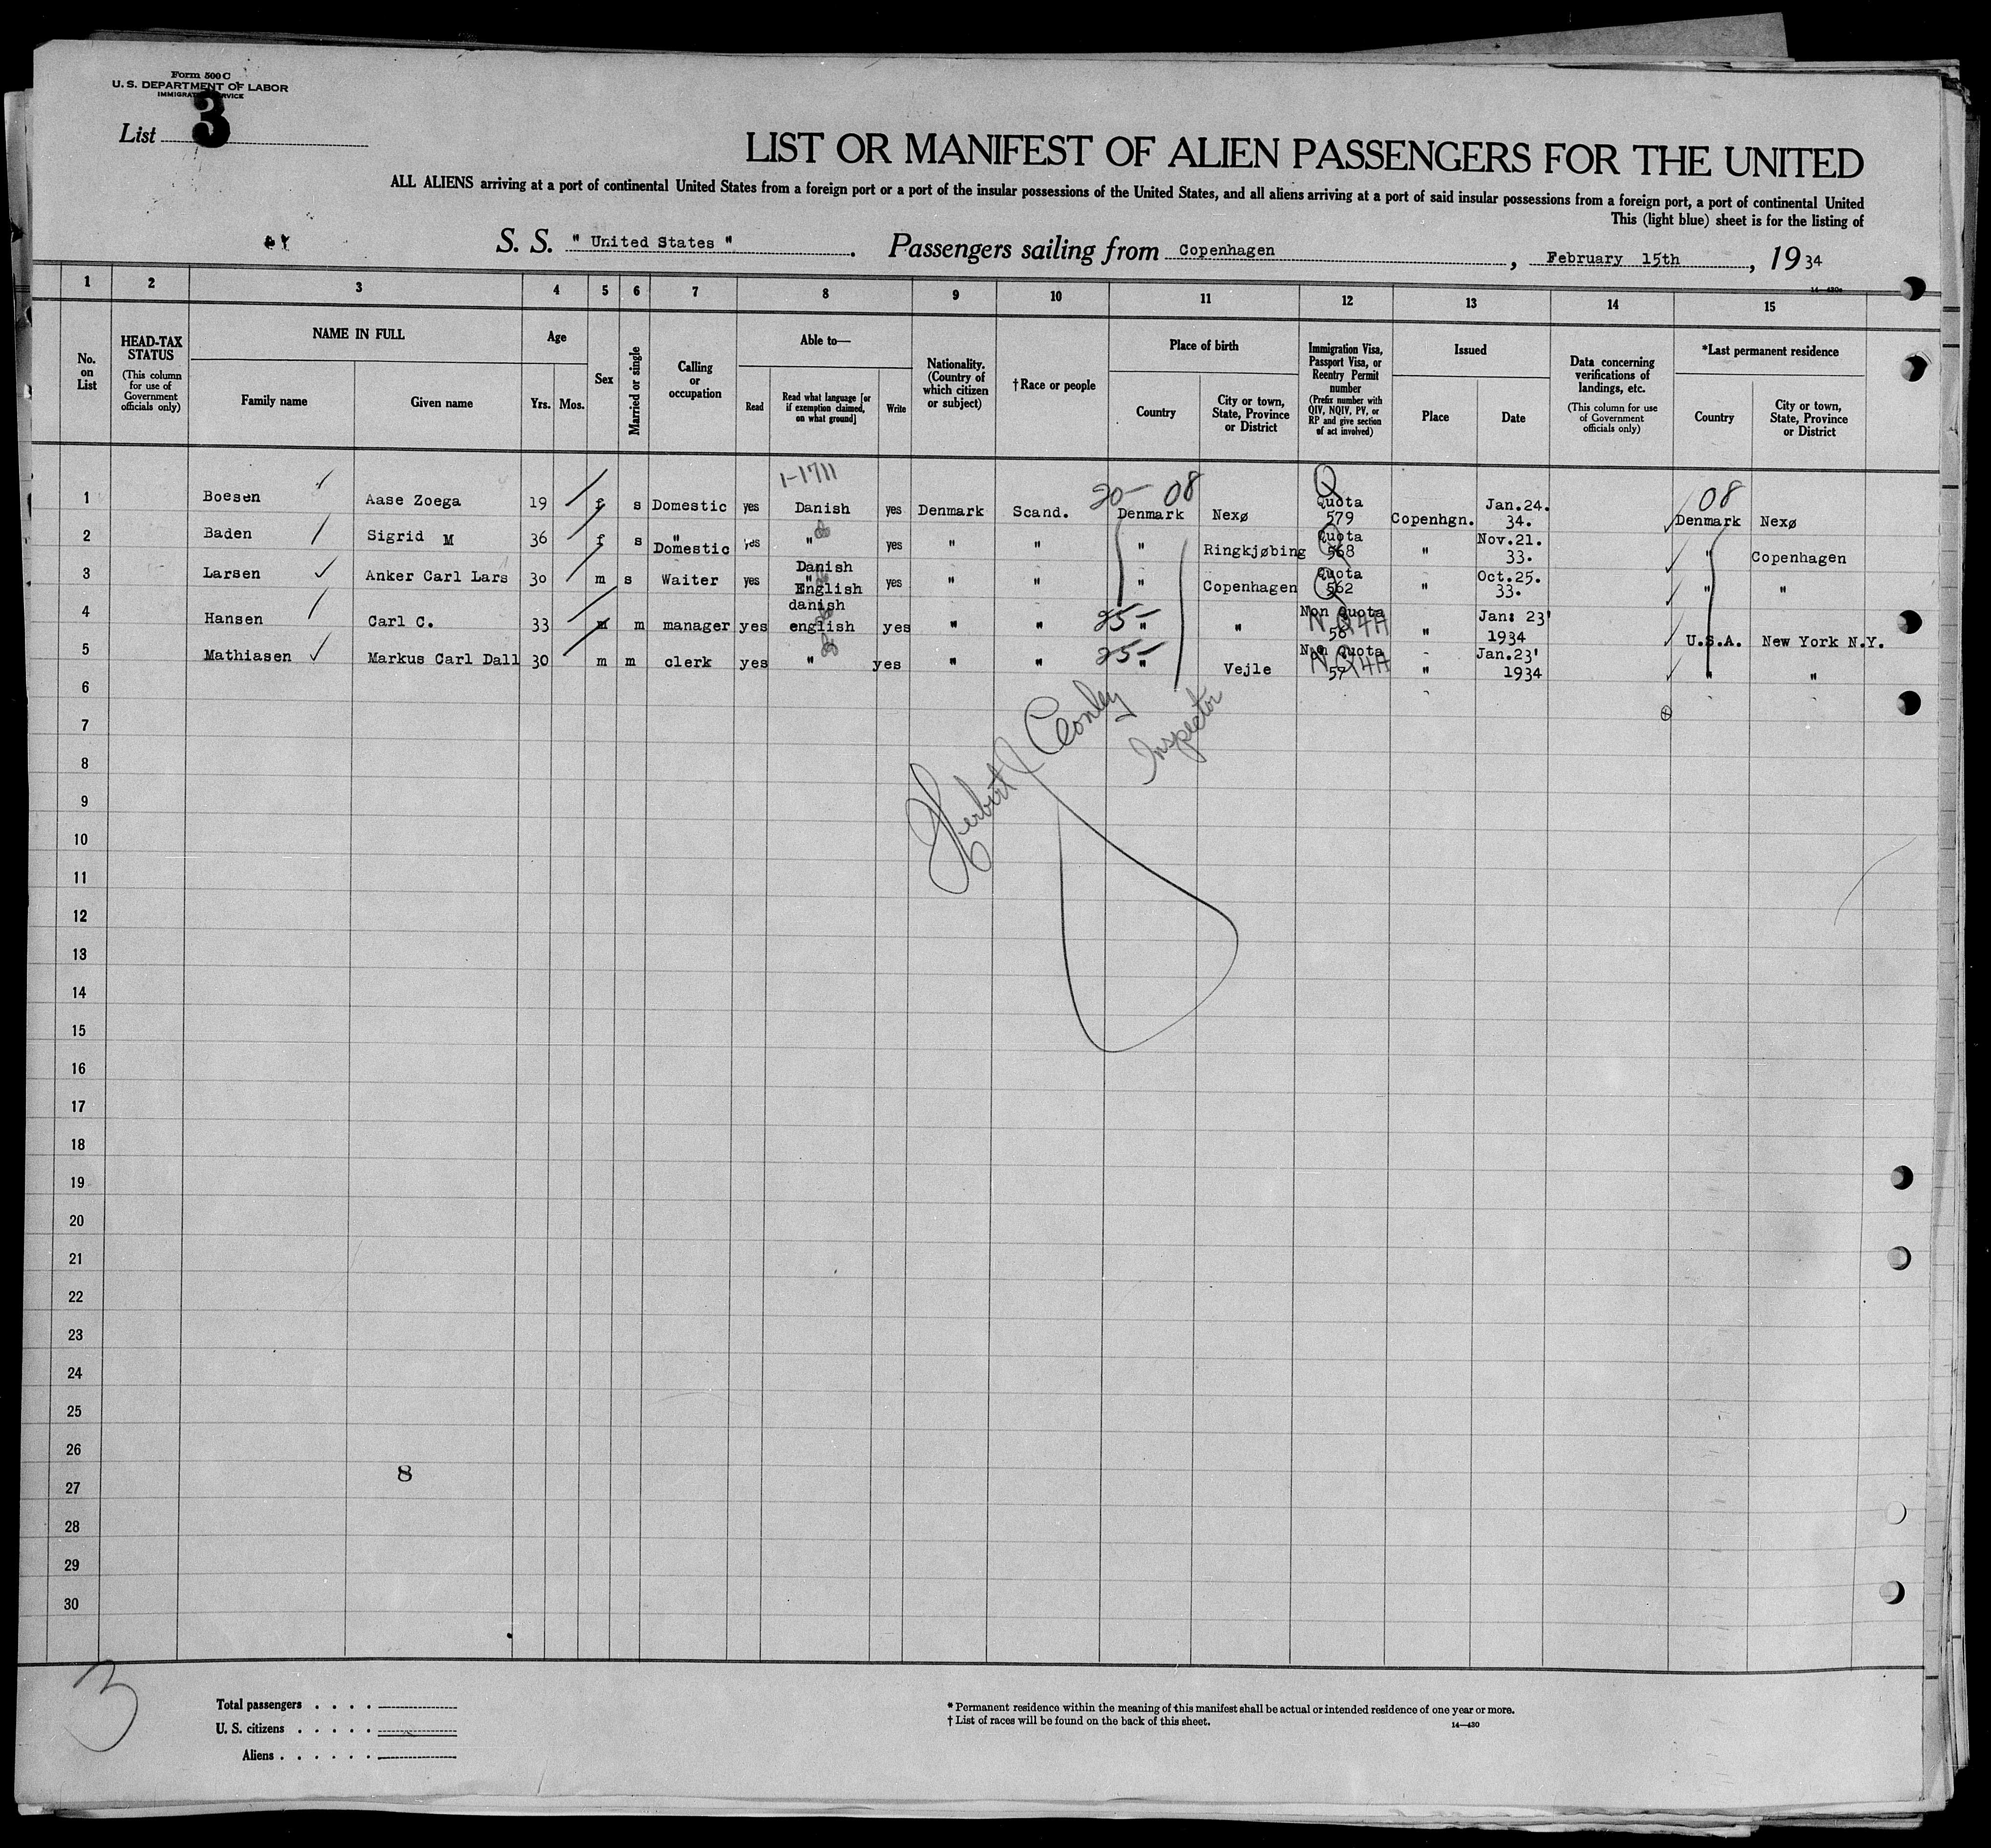 Form 500 C
U. S. DEPARTMENT OF LABOR
IMMIGRATION SERVICE
List 3
LIST OR MANIFEST OF ALIEN PASSENGERS FOR THE UNITED
ALL ALIENS arriving at a port of continental United States from a foreign port or a port of the insular possessions of the United States, and all aliens arriving at a port of said insular possessions from a foreign port, a port of continental United
This (light blue) sheet is for the listing of
S. S. " United States ". Passengers sailing from Copenhagen, February 15th, 19 34
14—430a
1 2 3 4 5 6 7 8 9 10 11 12 13 14 15
No. on List
HEAD-TAX STATUS (This column for use of Government officials only)
NAME IN FULL
Family name
Given name
Age
Yrs. Mos.
Sex
Married or single
Calling or occupation
Able to—
Read
Read what language [or if exemption claimed, on what ground]
Write
Nationality. (Country of which citizen or subject)
†Race or people
Place of birth
Country
City or town, State, Province or District
Immigration Visa, Passport Visa, or Reentry Permit number (Prefix number with QIV, NQIV, PV, or RP and give section of act involved)
Issued
Place
Date
Data concerning verifications of landings, etc. (This column for use of Government officials only)
*Last permanent residence
Country
City or town, State, Province or District
1-1711
20- 08
Q
08
1 Boesen Aase Zoega 19 f s Domestic yes Danish yes Denmark Scand. Denmark Nexø Quota 579 Copenhgn. Jan.24. 34. Denmark Nexø
2 Baden Sigrid M 36 f s " Domestic yes " yes " " " Ringkjøbing Quota 568 " Nov.21. 33. " Copenhagen
3 Larsen Anker Carl Lars 30 m s Waiter yes Danish " English yes " " " Copenhagen Quota 562 " Oct.25. 33. " "
4 Hansen Carl C. 33 m m manager yes danish english yes " " 25- " " Non Quota NQ4A 56 " Jan: 23' 1934 U.S.A. New York N.Y.
5 Mathiasen Markus Carl Dall 30 m m clerk yes " yes " " 25- " Vejle Non Quota NQ4A 57 " Jan.23' 1934 " "
6
7
8
9
10
11
12
13
14
15
16
17
18
19
20
21
22
23
24
25
26
27
28
29
30
Herbert Conley
Inspector
8
3
Total passengers
U. S. citizens
Aliens
* Permanent residence within the meaning of this manifest shall be actual or intended residence of one year or more.
† List of races will be found on the back of this sheet.
14—430